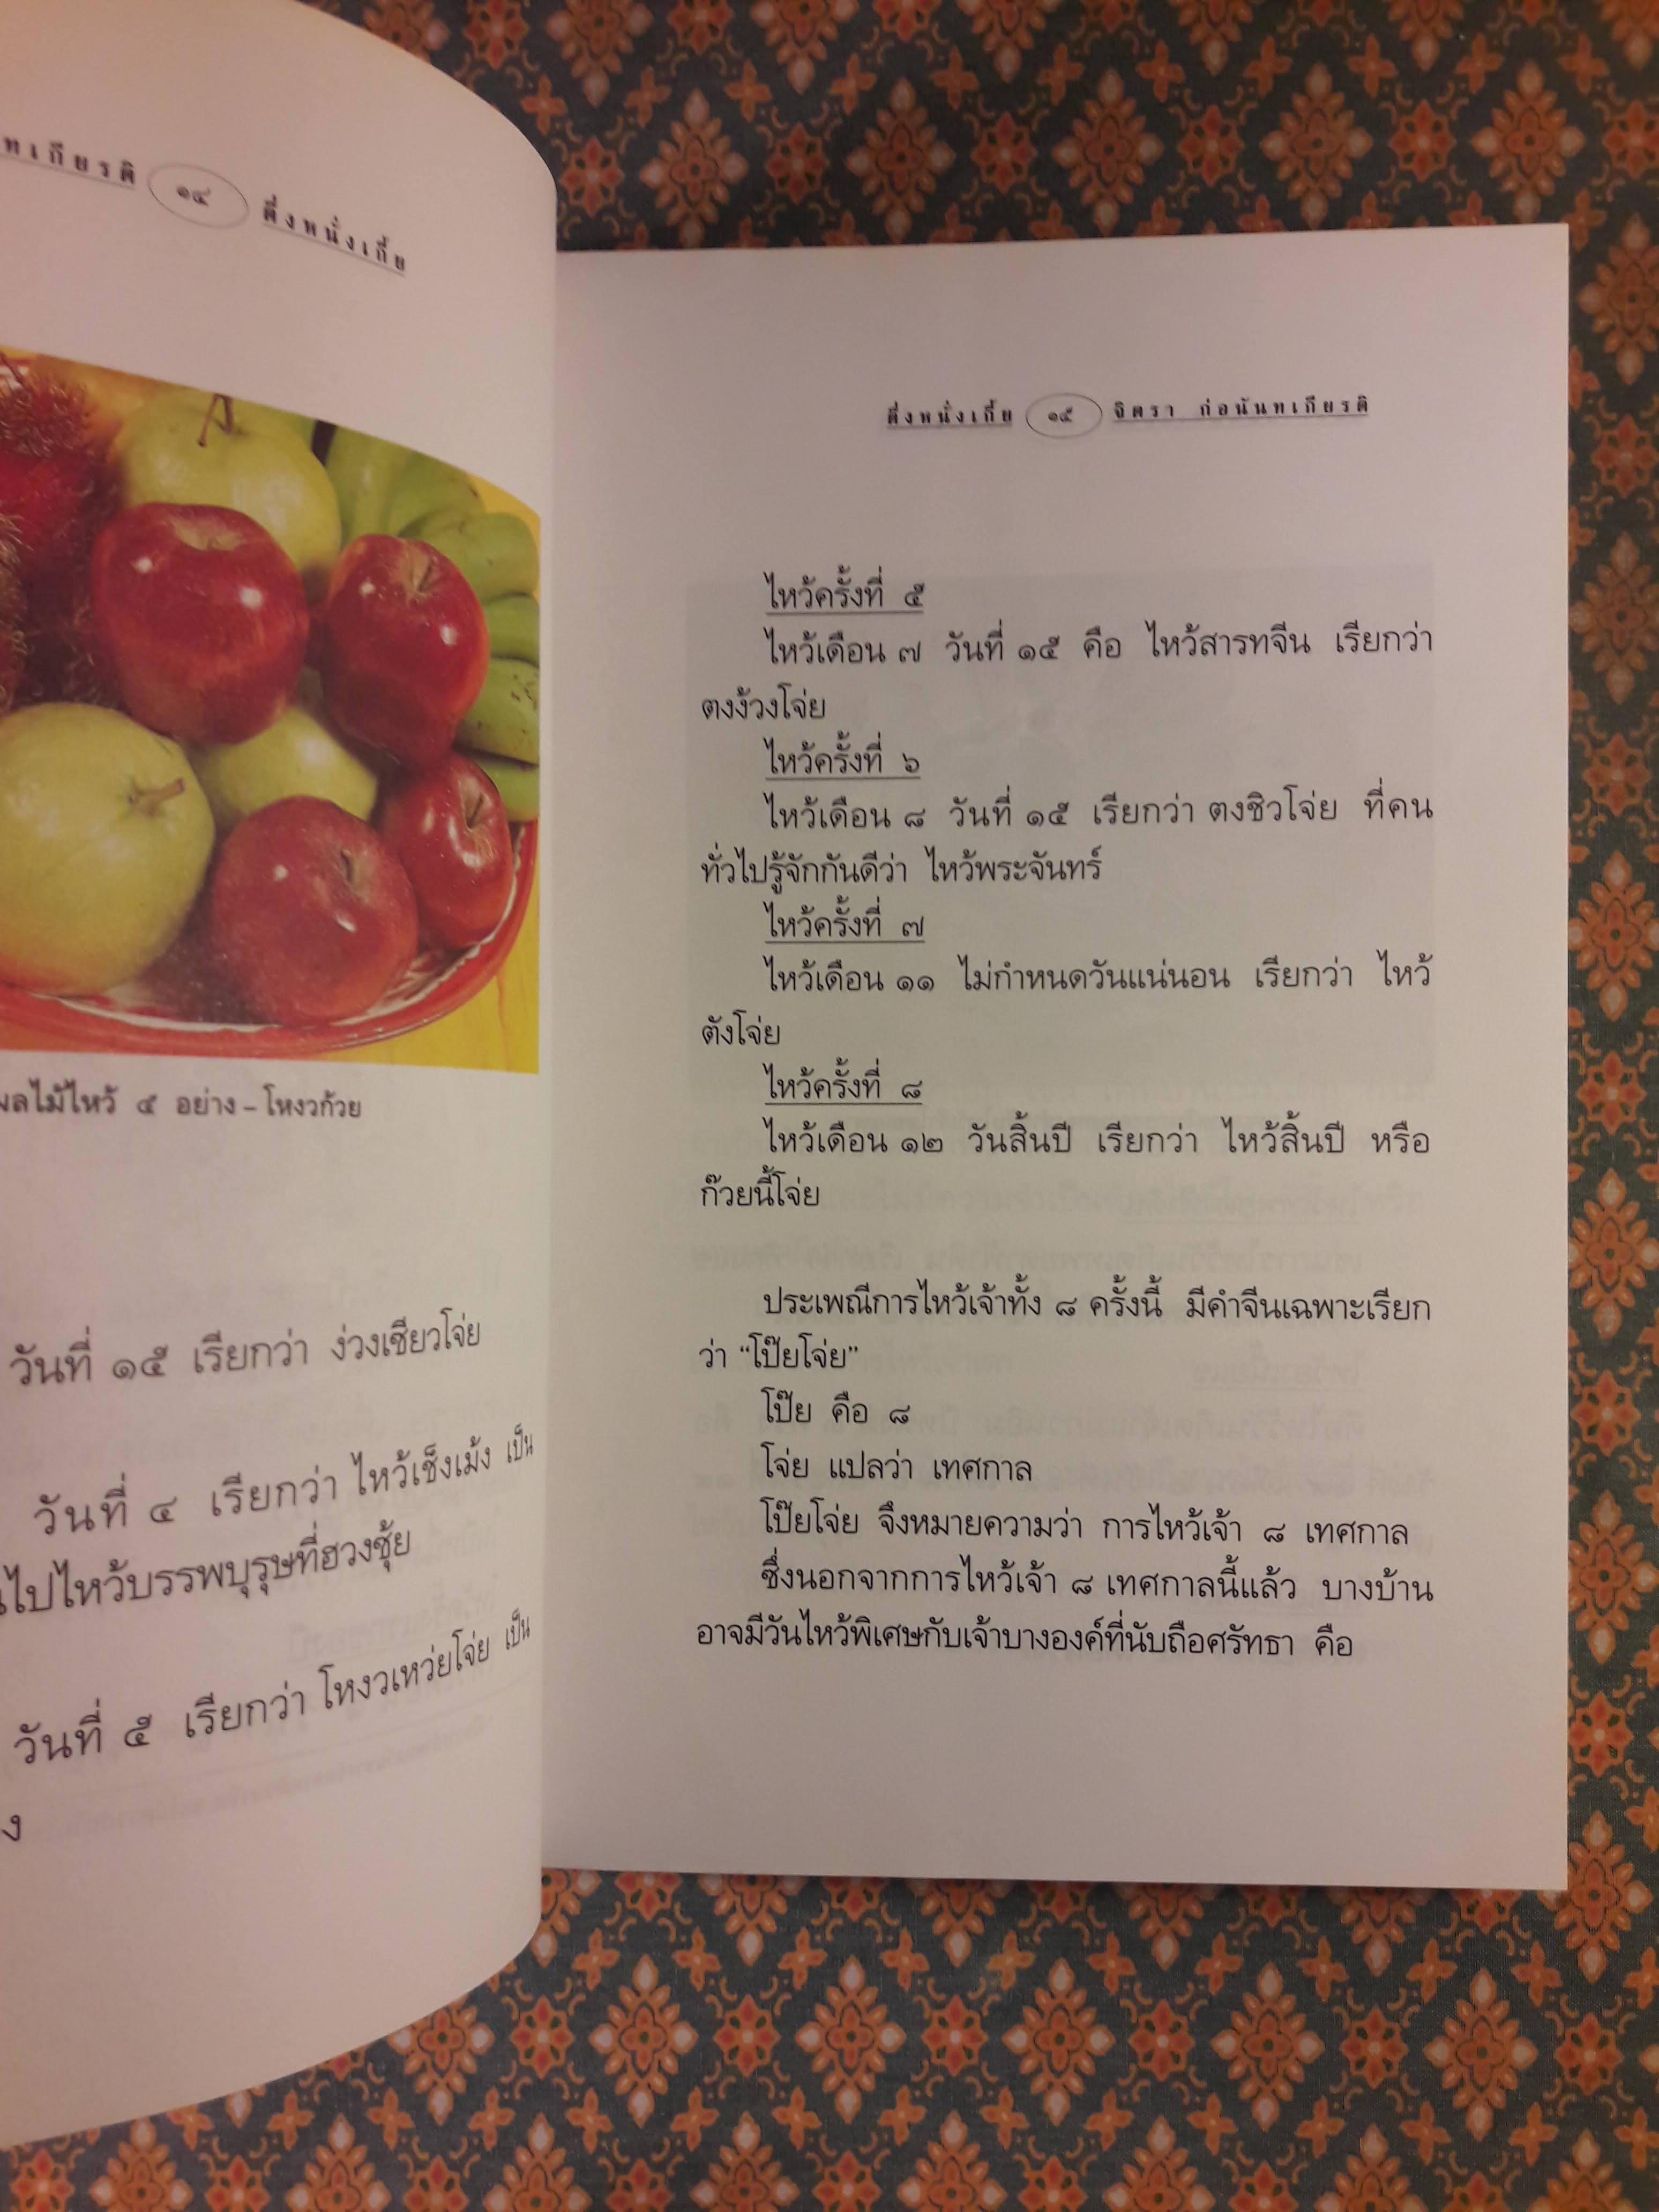 ทเกียรติ ๑๔ ตึ่งหนั่งเกี้ย
ผลไม้ไหว้ ๕ อย่าง – โหงวก้วย
วันที่ ๑๕ เรียกว่า ง่วงเซียวโจ่ย
วันที่ ๔ เรียกว่า ไหว้เช็งเม้ง เป็น
ไปไหว้บรรพบุรุษที่ฮวงซุ้ย
วันที่ ๕ เรียกว่า โหงวเหว่ยโจ่ย เป็น
ง
ตึ่งหนั่งเกี้ย ๑๕ จิตรา ก่อนันทเกียรติ
ไหว้ครั้งที่ ๕
ไหว้เดือน ๗ วันที่ ๑๕ คือ ไหว้สารทจีน เรียกว่า
ตงง้วงโจ่ย
ไหว้ครั้งที่ ๖
ไหว้เดือน ๘ วันที่ ๑๕ เรียกว่า ตงชิวโจ่ย ที่คน
ทั่วไปรู้จักกันดีว่า ไหว้พระจันทร์
ไหว้ครั้งที่ ๗
ไหว้เดือน ๑๑ ไม่กำหนดวันแน่นอน เรียกว่า ไหว้
ตังโจ่ย
ไหว้ครั้งที่ ๘
ไหว้เดือน ๑๒ วันสิ้นปี เรียกว่า ไหว้สิ้นปี หรือ
ก๊วยนี้โจ่ย
ประเพณีการไหว้เจ้าทั้ง ๘ ครั้งนี้ มีคำจีนเฉพาะเรียก
ว่า “โป๊ยโจ่ย”
โป๊ย คือ ๘
โจ่ย แปลว่า เทศกาล
โป๊ยโจ่ย จึงหมายความว่า การไหว้เจ้า ๘ เทศกาล
ซึ่งนอกจากการไหว้เจ้า ๘ เทศกาลนี้แล้ว บางบ้าน
อาจมีวันไหว้พิเศษกับเจ้าบางองค์ที่นับถือศรัทธา คือ